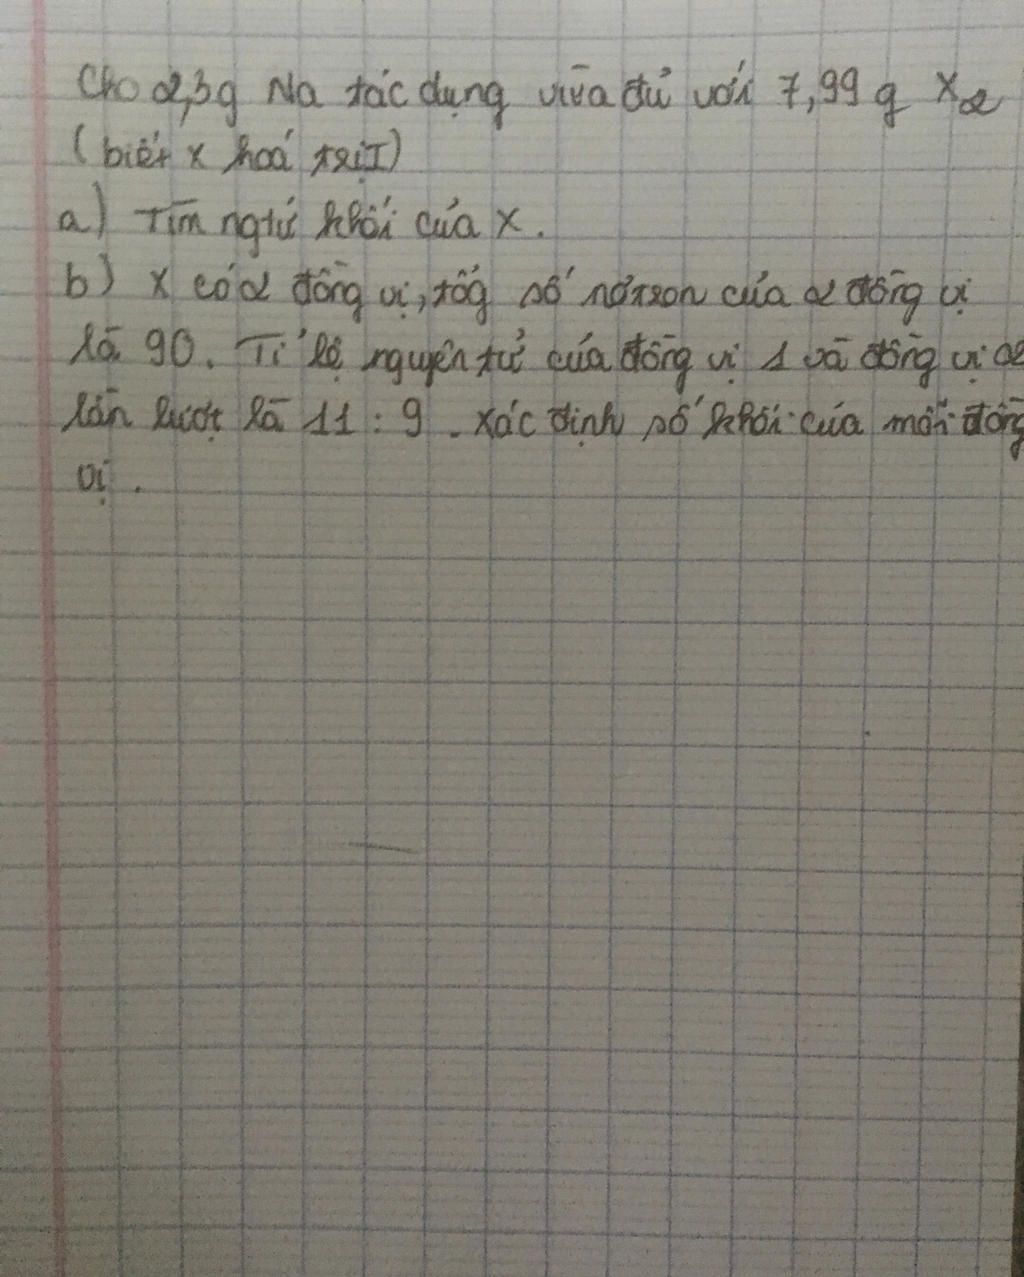 Cho 2,3g Na tác dụng vừa đủ với 7,99g X2
(biết X hoá trị I)
a) Tìm ngtử khối của X.
b) X có 2 đồng vị, tổg số nơtron của 2 đồng vị
là 90. Tỉ lệ nguyên tử của đồng vị 1 và đồng vị 2
lần lượt là 11 : 9. Xác định số khối của mỗi đồng
vị.